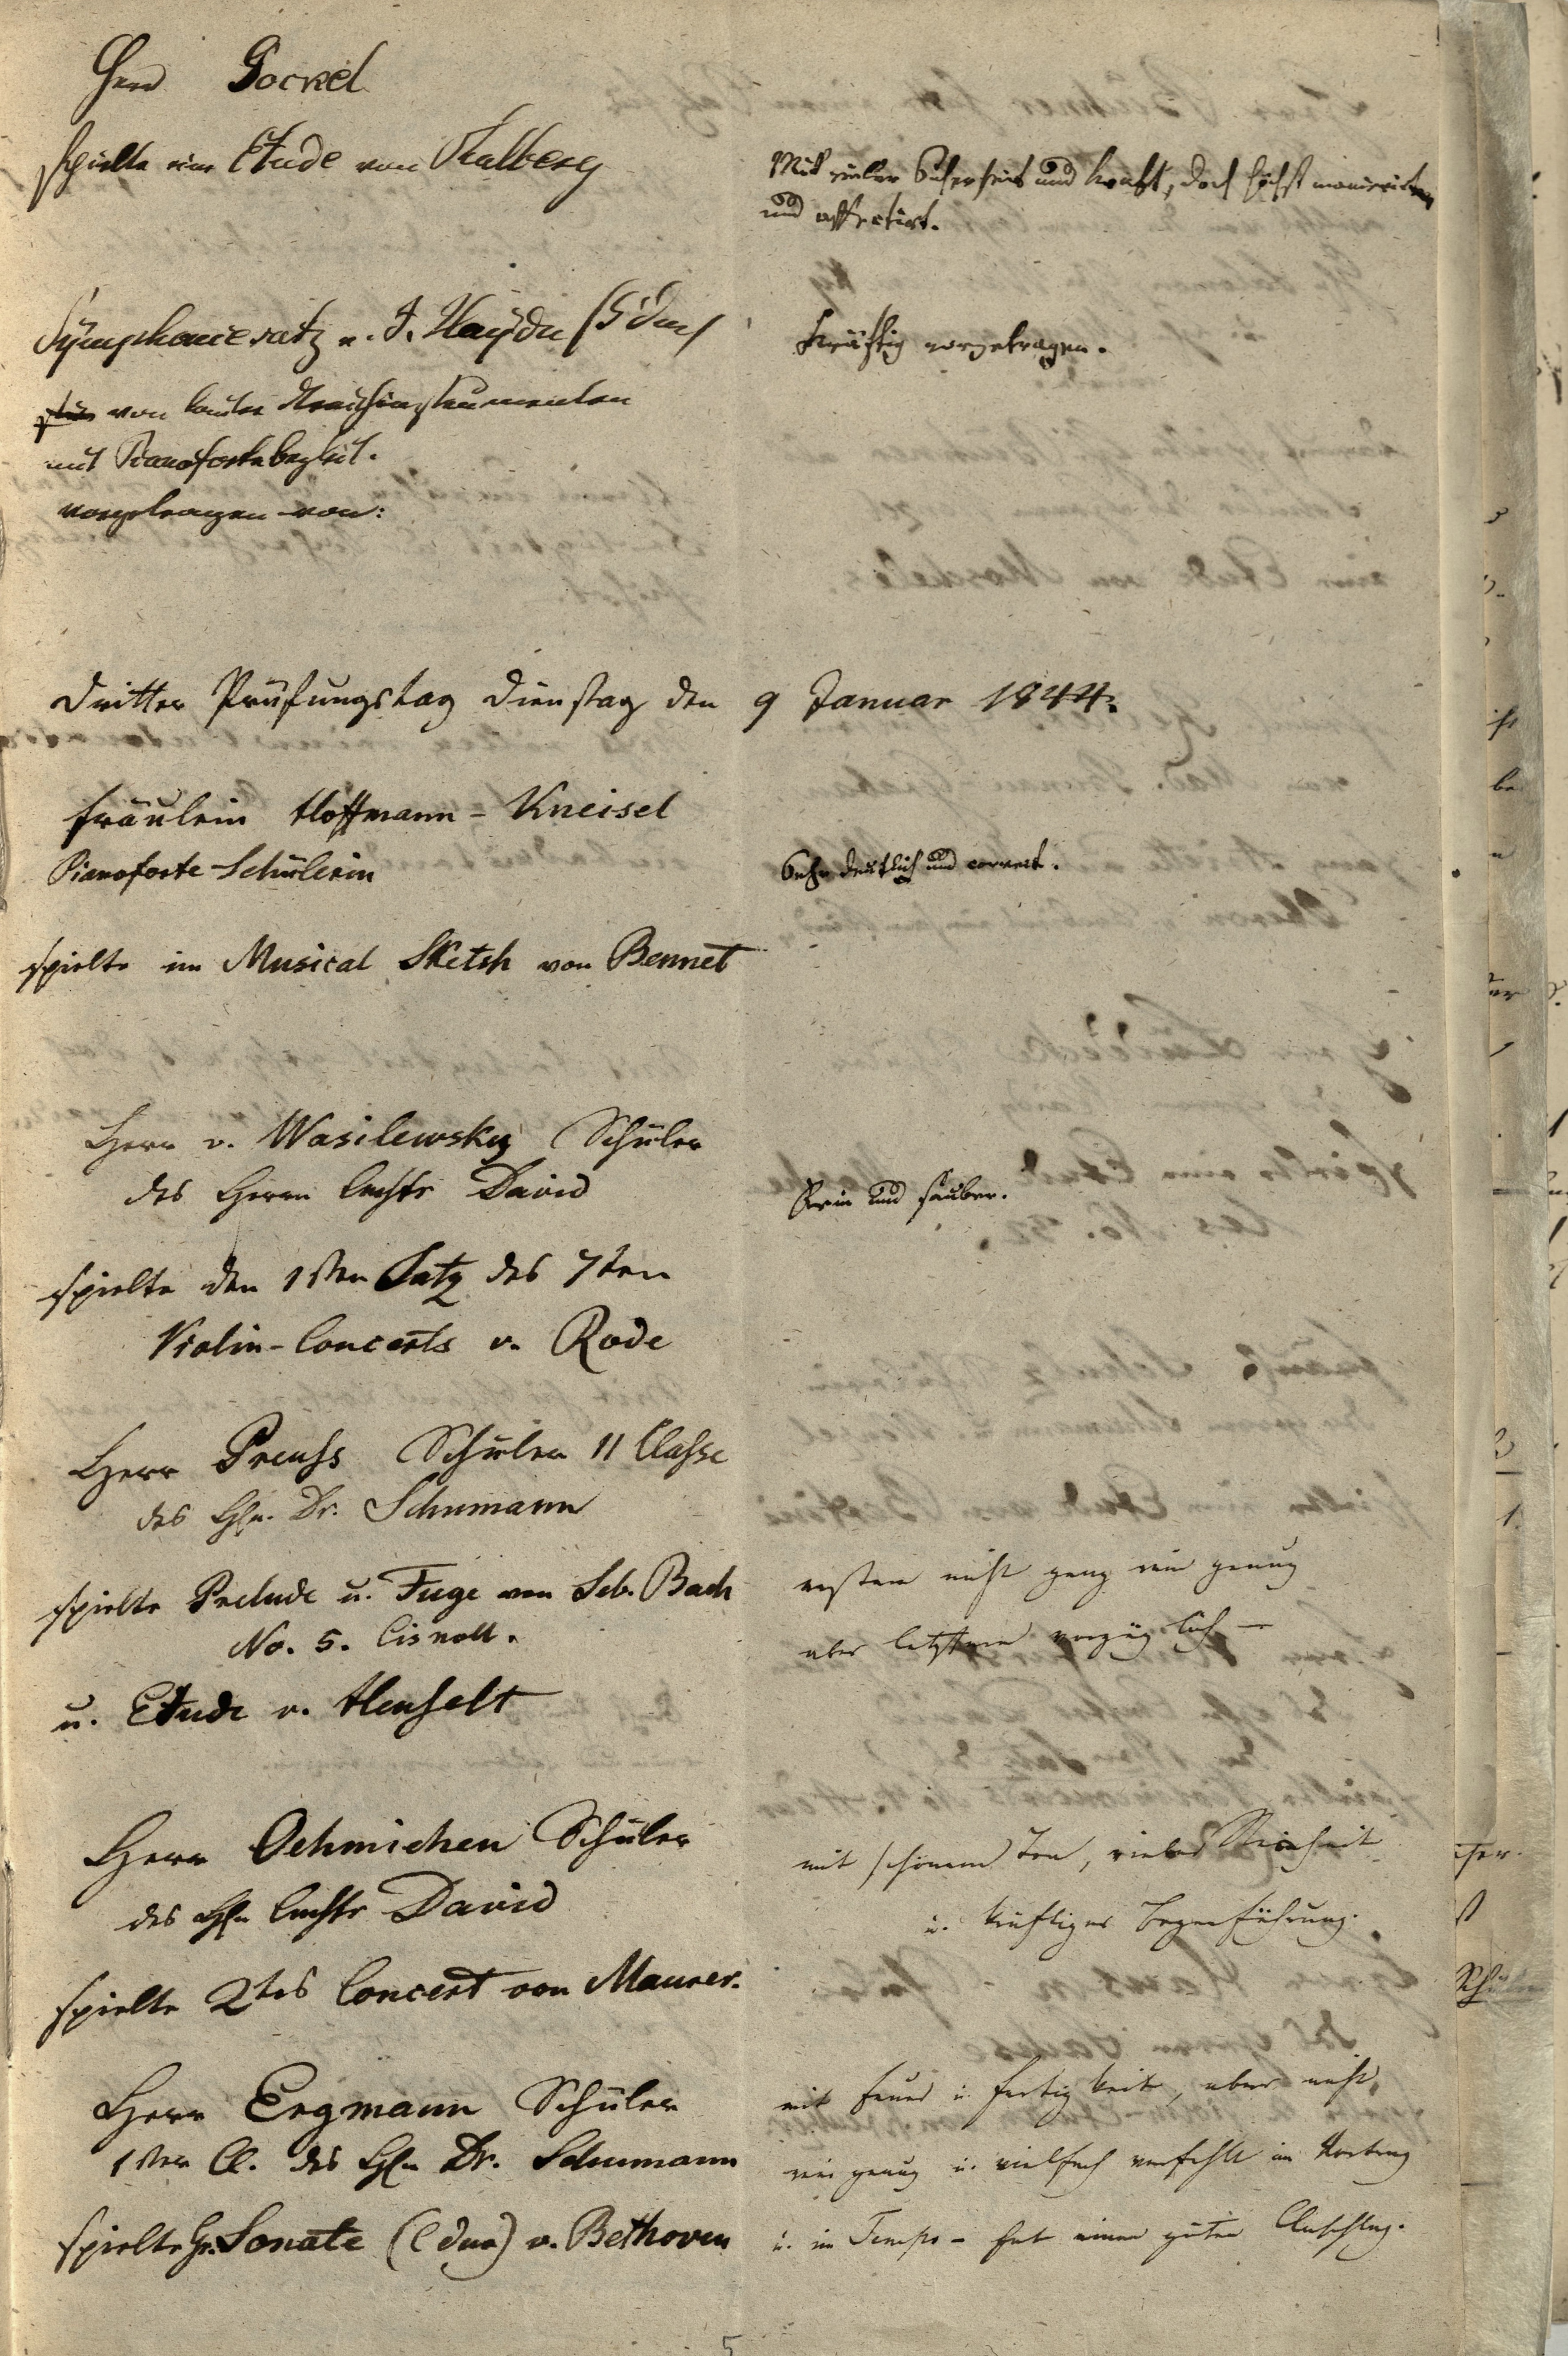 Herr Gockel
spielte eine Etude von Thalberg
Mit vieler Sicherheit und Kraft, doch höchst manierirt
und affectirt.
Symphoniesatz v. J. Haydn (G dur)
kräftig vorgetragen.
von lauter Streichinstrumenten
mit Pianofortebegleit.
vorgetragen von:
Dritter Prüfungstag Dienstag den 9 Januar 1844.
Fräulein Hoffmann-Kneisel
Pianoforte-Schülerin
Sehr deutlich und correct.
spielte im Musical Sketsh von Bennet
Herr v. Wasilewsky Schüler
des Herrn Cmstr David
Rein und sauber.
spielte den 1sten Satz des 7ten
Violin-Concerts v. Rode
Herr Preuss Schüler II Classe
des Hrn. Dr. Schumann
spielte Prelude u. Fuge von Seb. Bach
No. 5. Cis moll.
erstere nicht ganz rein genug
aber letztere vorzüglich —
u. Etude v. Henselt
Herr Oehmichen Schüler
des Hrn Cmstr David
mit schönem Ton, vieler Reinheit
u. kräftiger Bogenführung.
spielte 2tes Concert von Maurer.
Herr Ergmann Schüler
1ster Cl. des Hrn Dr. Schumann
spielte Gr. Sonate (C dur) v. Bethoven
mit Feuer u. Fertigkeit, aber nicht
rein genug u. vielfach verfehlt im Vortrag
u. im Tempo - hat einen guten Anschlag.
5